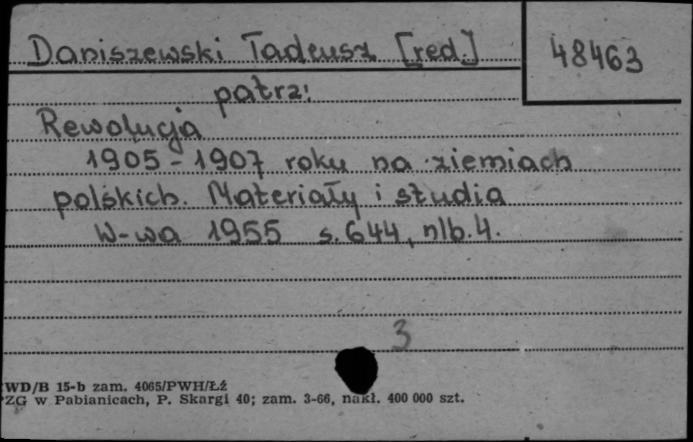 Daniszewski Tadeusz [red.]
48463
patrz:
Rewolucja
1905-1907 roku na ziemiach
polskich. Materiały i studia
W-wa 1955 s. 644, nlb. 4.
3
WD/B 15-b zam. 4065/PWH/Łź
PZG w Pabianicach, P. Skargi 40; zam. 3-66, nakł. 400 000 szt.